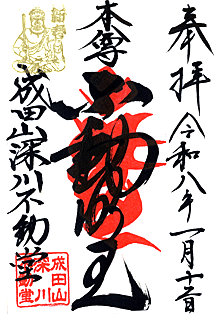 奉拝
令和八年一月十一日
本尊
不動明王
成田山深川不動堂
新春
成田山
深川
不動堂